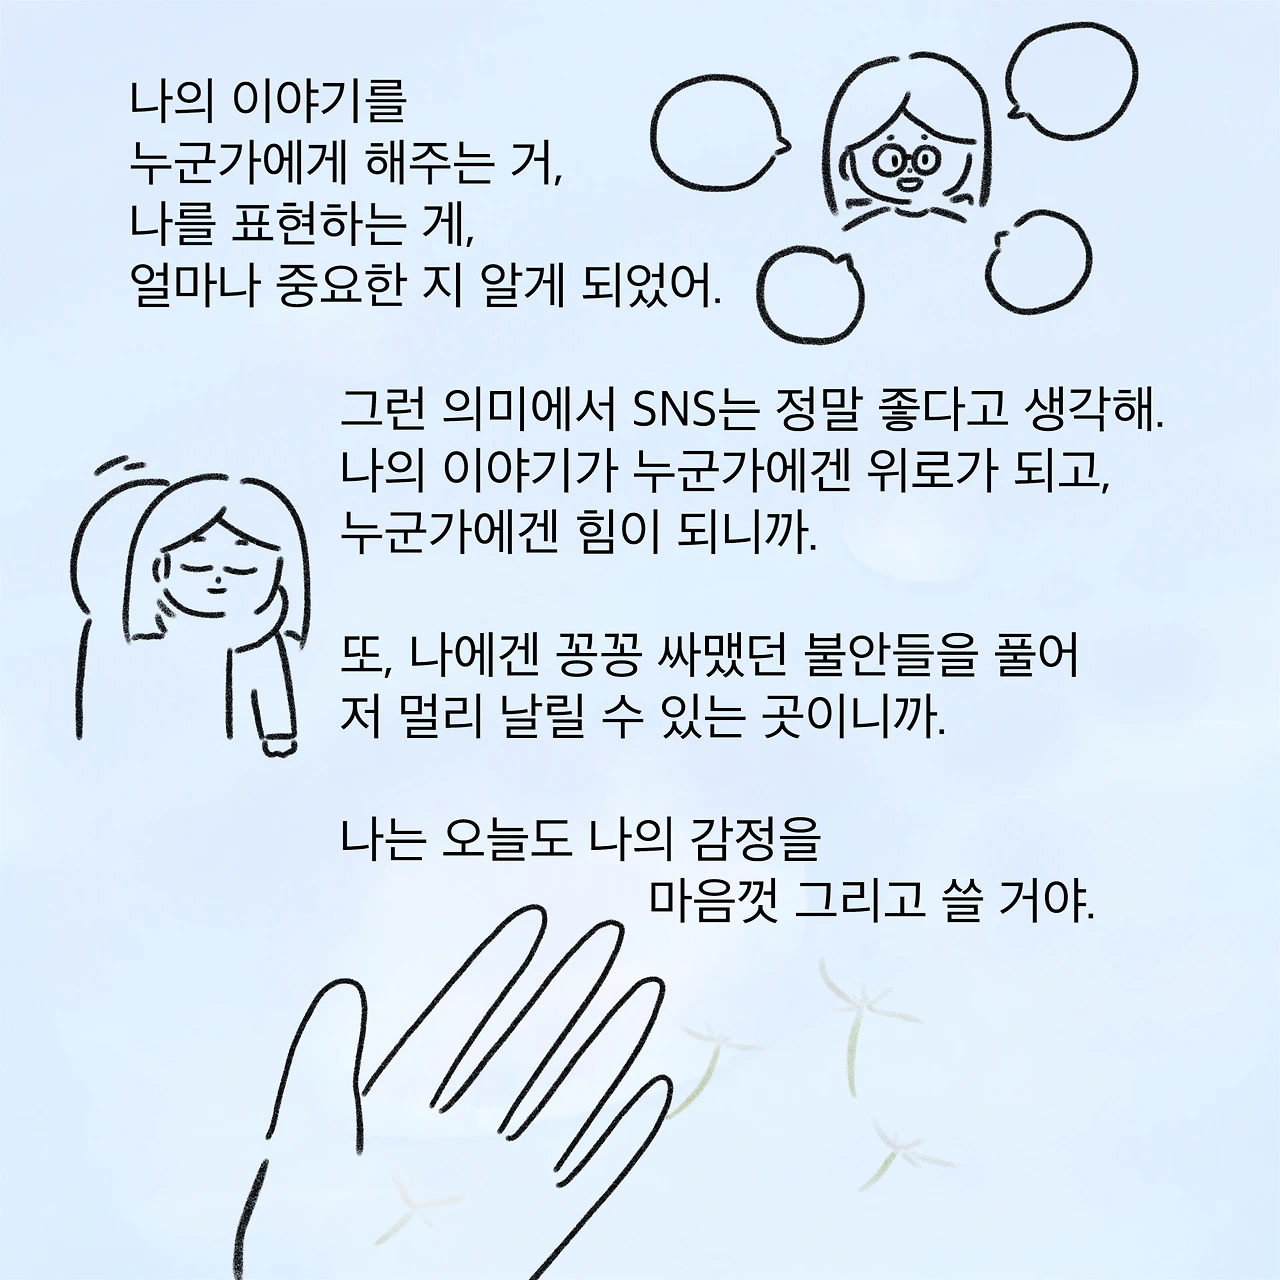 나의 이야기를
누군가에게 해주는 거,
나를 표현하는 게,
얼마나 중요한 지 알게 되었어.
그런 의미에서 SNS는 정말 좋다고 생각해.
나의 이야기가 누군가에겐 위로가 되고,
누군가에겐 힘이 되니까.
또, 나에겐 꽁꽁 싸맸던 불안들을 풀어
저 멀리 날릴 수 있는 곳이니까.
나는 오늘도 나의 감정을
마음껏 그리고 쓸 거야.